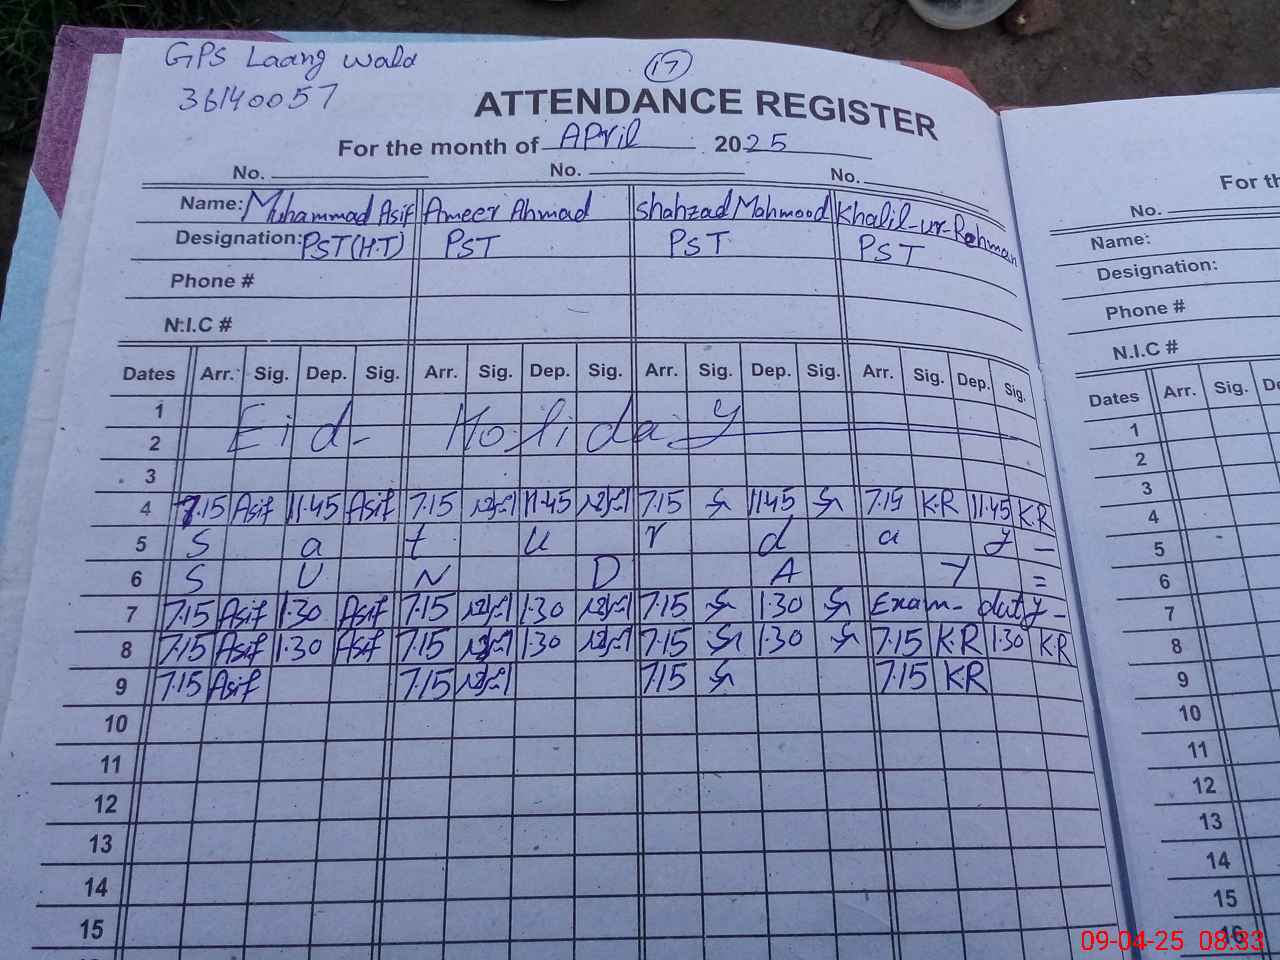 GPS Laang wala
36140057
17
ATTENDANCE REGISTER
For the month of April 2025
No. No. No.
Name: Muhammad Asif Ameer Ahmad Shahzad Mahmood Khalil-ur-Rehman
Designation: PST(H.T) PST PST PST
Phone #
N.I.C #
Dates Arr. Sig. Dep. Sig. Arr. Sig. Dep. Sig. Arr. Sig. Dep. Sig. Arr. Sig. Dep. Sig.
1
2 Eid- Holiday
3
4 7.15 Asif 11.45 Asif 7.15 11.45 7.15 11.45 7.15 K.R 11.45 K.R
5 S a t u r d a y -
6 S U N D A Y =
7 7.15 Asif 1.30 Asif 7.15 1.30 7.15 1.30 Exam- duty-
8 7.15 Asif 1.30 Asif 7.15 1.30 7.15 1.30 7.15 K.R 1.30 K.R
9 7.15 Asif 7.15 7.15 7.15 KR
10
11
12
13
14
15
For th
No.
Name:
Designation:
Phone #
N.I.C #
Dates Arr. Sig. De
1
2
3
4
5
6
7
8
9
10
11
12
13
14
15
16
09-04-25 08:33